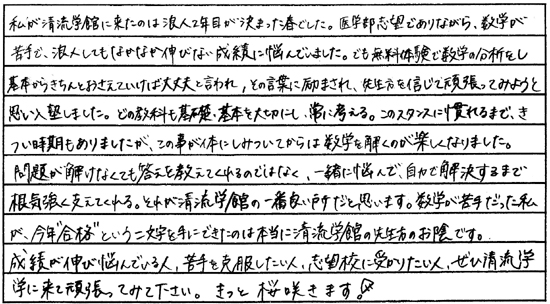 私が清流学館に来たのは浪人2年目が決まった春でした。医学部志望でありながら、数学が
苦手で、浪人してもなかなか伸びない成績に悩んでいました。でも無料体験で数学の分析をし
基本からきちんとおさえていけば大丈夫と言われ、その言葉に励まされ、先生方を信じて頑張ってみようと
思い入塾しました。どの教科も基礎・基本を大切にし、常に考える。このスタンスに慣れるまで、き
つい時期もありましたが、この事が体にしみついてからは数学を解くのが楽しくなりました。
問題が解けなくても答えを教えてくれるのではなく、一緒に悩んで、自力で解決するまで
根気強く支えてくれる。それが清流学館の一番良い所だと思います。数学が苦手だった私
が、今年"合格"という二文字を手にできたのは本当に清流学館の先生方のお陰です。
成績が伸び悩んでいる人、苦手を克服したい人、志望校に受かりたい人、ぜひ清流学
学に来て頑張ってみて下さい。きっと桜咲きます!